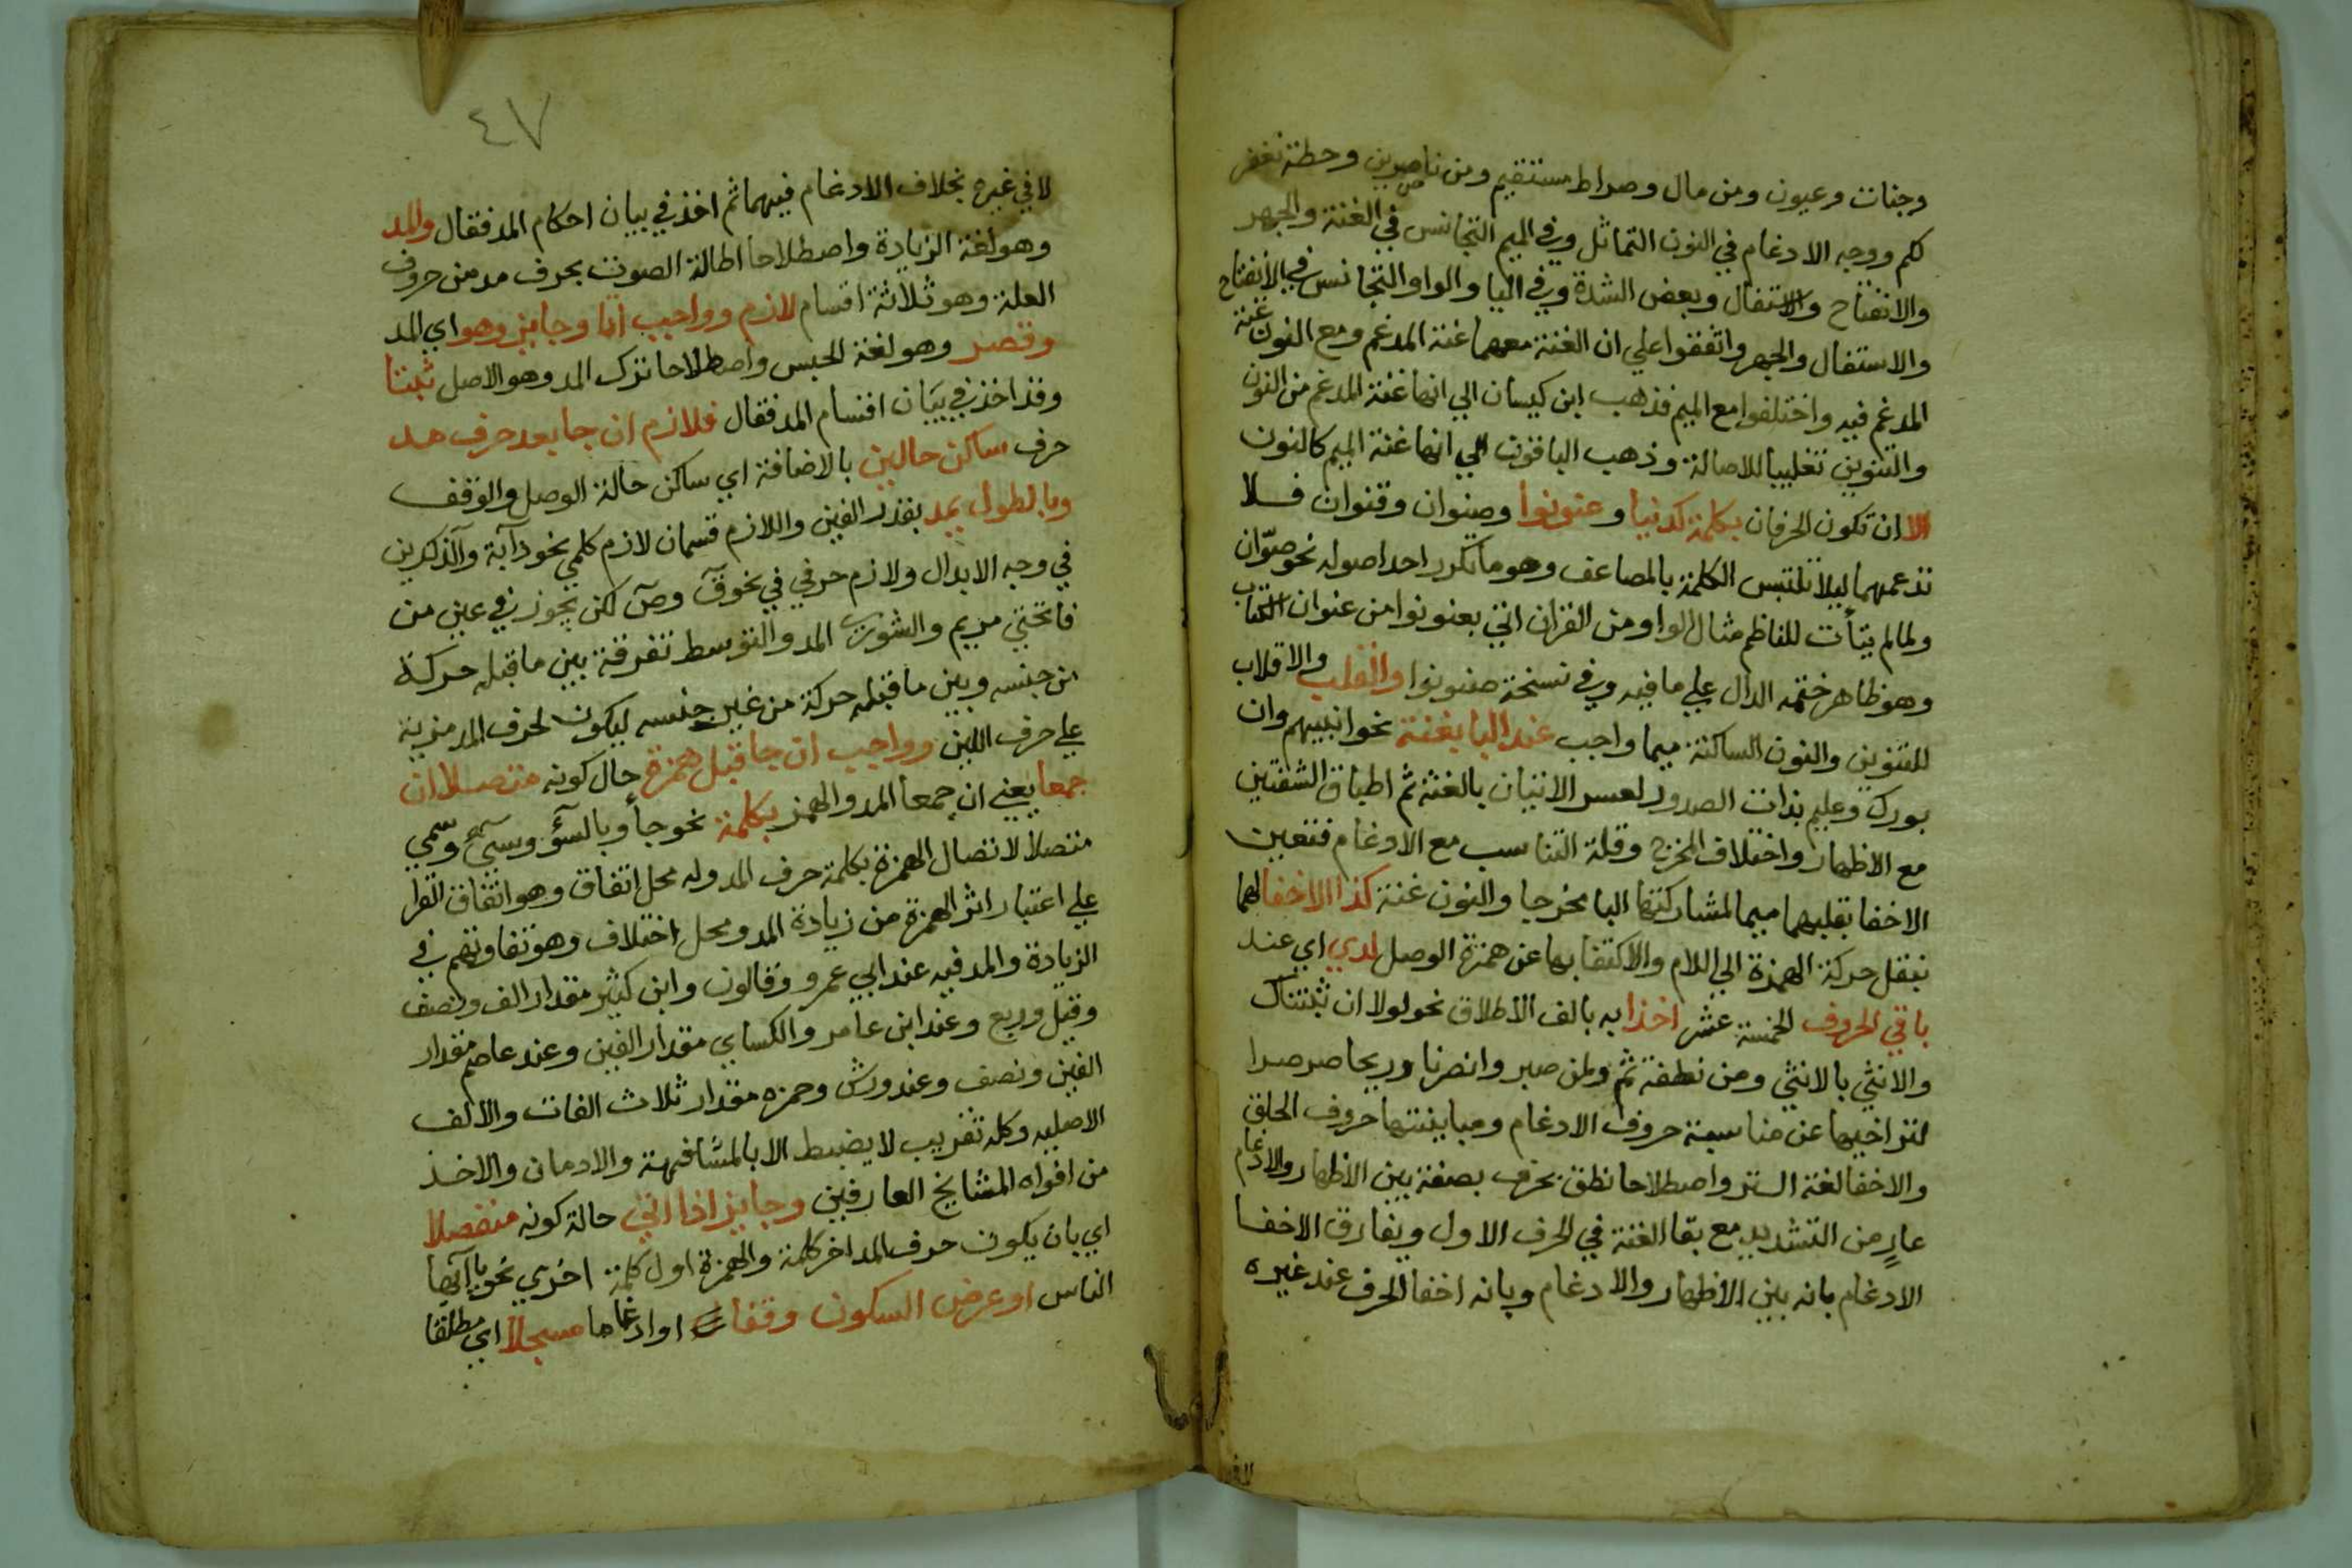 وجنات وعيون ومن مال وصراط مستقيم ومن ناصرين وحطة نغفر
لكم ووجه الادغام في النون التماثل وفي الميم التجانس في الغنة والجهر
والانفتاح والاستفال وبعض الشدة وفي اليا والواو التجانس في الانفتاح
والاستفال والجهر واتفقوا علي ان الغنة معهما غنة المدغم ومع النون غنة
المدغم فيه واختلفوا مع الميم فذهب ابن كيسان الي انها غنة المدغم من النون
والتنوين تغليبا للاصالة وذهب الباقون الي انها غنة الميم كالنون
الا ان تكون الحرفان بكلمة كدنيا وعنونوا وصنوان وقنوان فلا
تدغمهما ليلا تلتبس الكلمة بالمضاعف وهو ما تكرر احد اصوله نحو صوّان
ولما لم يتأت للناظم مثال الواو من القران اتي بعنونوا من عنوان الكتاب
وهو ظاهر ختمه الدال علي ما فيه وفي نسخة صنونوا والقلب والاقلاب
للتنوين والنون الساكنة ميما واجب عند البا بغنة نحو انبيهم وان
بورك وعليم بذات الصدور لعسر الاتيان بالغنة ثم اطباق الشفتين
مع الاظهار واختلاف المخرج وقلة التناسب مع الادغام فتعين
الاخفا بقلبهما ميما لمشاركتها البا مخرجا والنون غنة كذا الاخفا لهما
بنقل حركة الهمزة الي اللام والاكتفا بها عن همزة الوصل لدي اي عند
باقي الحروف الخمسة عشر اخذا به بالف الاطلاق نحو لولا ان ثبتناك
والانثي بالانثي ومن نطفة ثم ولمن صبر وانصرنا وريحا صرصرا
لتراخيها عن مناسبة حروف الادغام ومباينتها حروف الحلق
والاخفا لغة الستر واصطلاحا نطق بحرف بصفة بين الاظهار والادغام
عارٍ من التشديد مع بقا الغنة في الحرف الاول ويفارق الاخفا
الادغام بانه بين الاظهار والادغام وبانه اخفا الحرف عند غيره
٤٧
لا في غيره بخلاف الادغام فيهما ثم اخذ في بيان احكام المد فقال والمد
وهو لغة الزيادة واصطلاحا اطالة الصوت بحرف مد من حروف
العلة وهو ثلاثة اقسام لازم وواجب اتا وجايز وهو اي المد
وقصر وهو لغة الحبس واصطلاحا ترك المد وهو الاصل ثبتا
وقد اخذ في بيان اقسام المد فقال فلازم ان جا بعد حرف مد
حرف ساكن حالين بالاضافة اي ساكن حالة الوصل والوقف
وبالطول يمد بقدر الفين واللازم قسمان لازم كلمي نحو دآبة وآلذكرين
في وجه الابدال ولازم حرفي في نحو قٓ وصٓ لكن يجوز في عين من
فاتحتي مريم والشوري المد والتوسط تفرقة بين ما قبله حركة
من جنسه وبين ما قبله حركة من غير جنسه ليكون لحرف المد مزية
علي حرف اللين وواجب ان جا قبل همزة حال كونه متصلا ان
جمعا يعني ان جمعا المد والهمز بكلمة نحو جأ وبالسؤ وسئ وسمي
متصلا لاتصال الهمزة بكلمة حرف المد وله محل اتفاق وهو اتفاق القرا
علي اعتبار اثر الهمزة من زيادة المد ومحل اختلاف وهو تفاوتهم في
الزيادة والمد فيه عند ابي عمرو وقالون وابن كثير مقدار الف ونصف
وقيل وربع وعند ابن عامر والكساي مقدار الفين وعند عاصم مقدار
الفين ونصف وعند ورش وحمزه مقدار ثلاث الفات والالف
الاصليه وكله تقريب لا يضبط الا بالمشافهة والادمان والاخذ
من افواه المشايخ العارفين وجايز اذا اتي حالة كونه منفصلا
اي بان يكون حرف المد اخر كلمة والهمزة اول كلمة اخري نحو يا ايها
الناس او عرض السكون وقفا او ادغاما مسجلا اي مطلقا